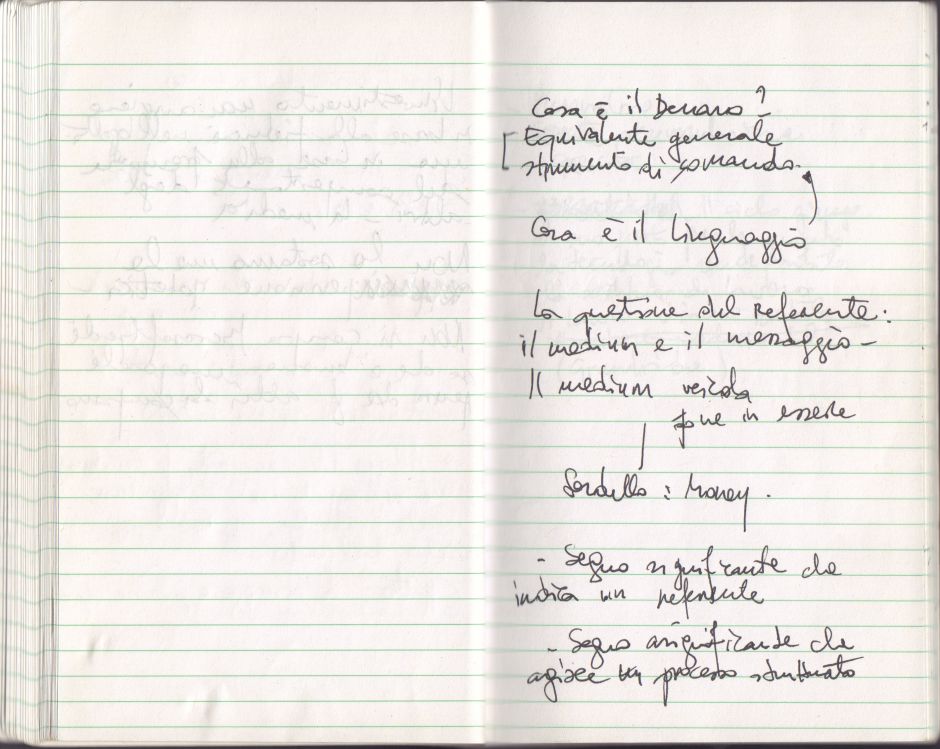 Cosa è il Denaro?
Equivalente generale
strumento di comando.
Cosa è il linguaggio
La questione del Referente:
il medium e il messaggio –
Il medium veicola
pone in essere
Sordello : Money .
- Segno significante che
indica un referente
- Segno asignificante che
agisce un processo strutturato